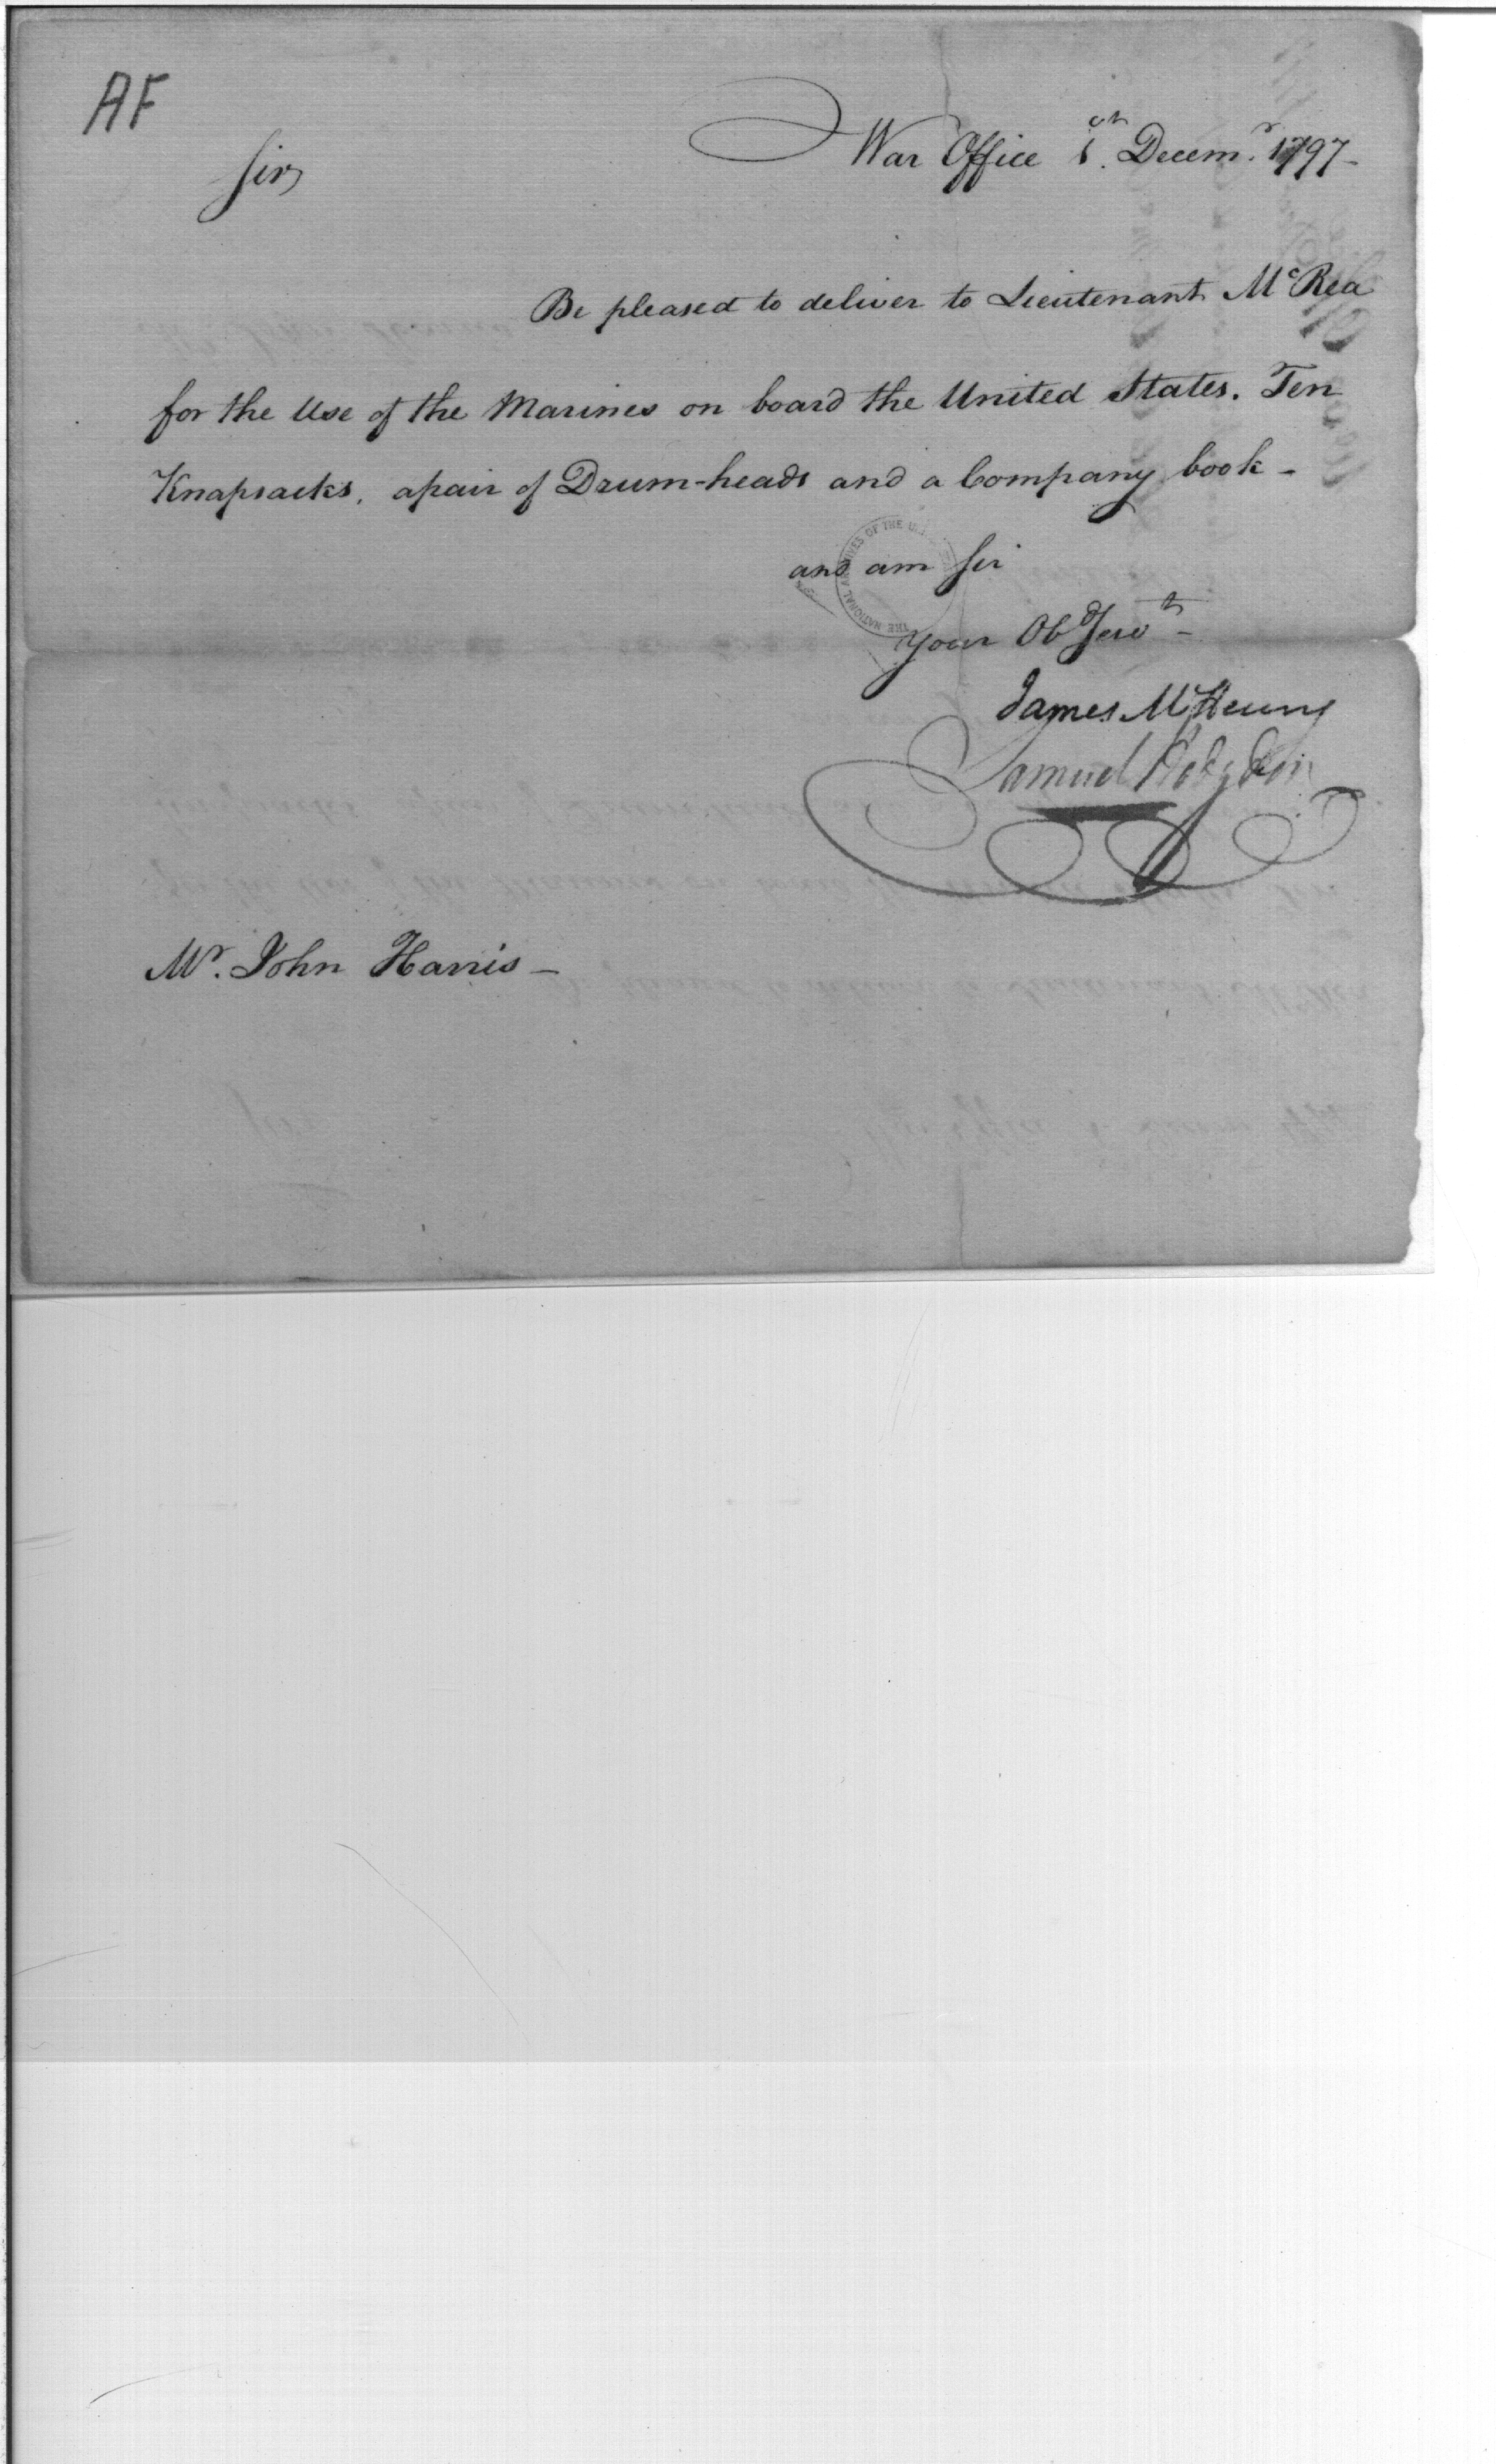 AF
War Office 1st. Decemr. 1797-
Sir,
Be pleased to deliver to Lieutenant McRea
for the Use of the Marines on board the United States. Ten
Knapsacks, apair of Drum-heads and a Company book -
and am Sir
THE NATIONAL ARCHIVES OF THE
Your Obd Servt -
James McHenry
Samuel Hodgdon
Mr. John Harris -